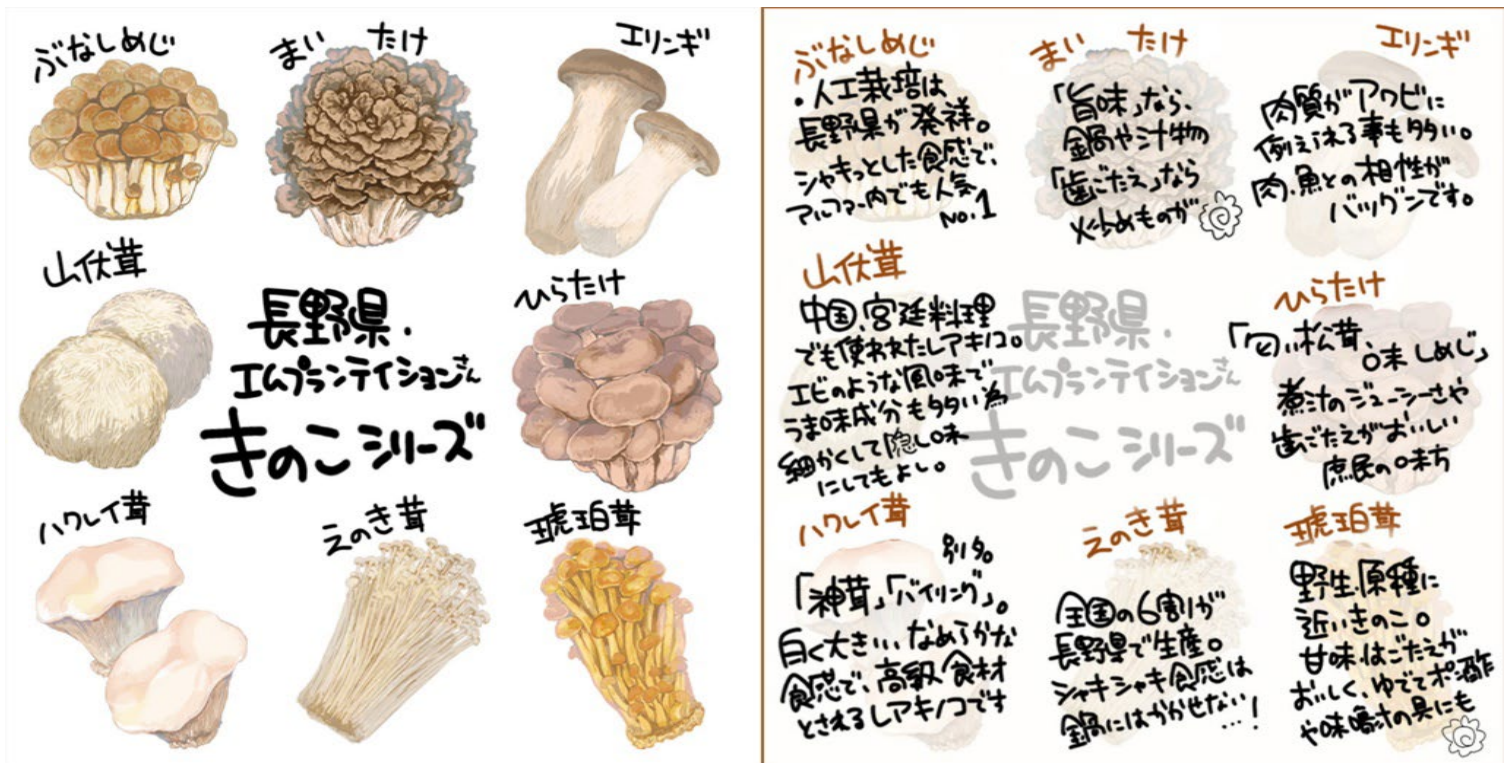 ぶなしめじ
まいたけ
エリンギ
山伏茸
長野県・
エムプランテイションさん
きのこシリーズ
ひらたけ
ハクレイ茸
えのき茸
琥珀茸
ぶなしめじ
・人工栽培は
長野県が発祥。
シャキっとした食感で、
アルファー内でも人気
No.1
まいたけ
「旨味」なら、
鍋や汁物
「歯ごたえ」なら
炒めものが
エリンギ
肉質がアワビに
例えられる事も多い。
肉、魚との相性が
バツグンです。
山伏茸
中国、宮廷料理
でも使われたレアキノコ。
エビのような風味で
うま味成分も多い為
細かくして隠し味
にしてもよし。
長野県・
エムプランテイションさん
きのこシリーズ
ひらたけ
松茸、
味しめじ」
煮汁のジューシーさや
歯ごたえがおいしい
庶民の味方
ハクレイ茸
別名。
「神茸」「バイリング」。
白く大きい、なめらかな
食感で、高級食材
とされるレアキノコです
えのき茸
全国の6割が
長野県で生産。
シャキシャキ食感は
鍋にはかかせない…!
琥珀茸
野生、原種に
近いきのこ。
甘味、はごたえが
おいしく、ゆでてポン酢
や味噌汁の具にも